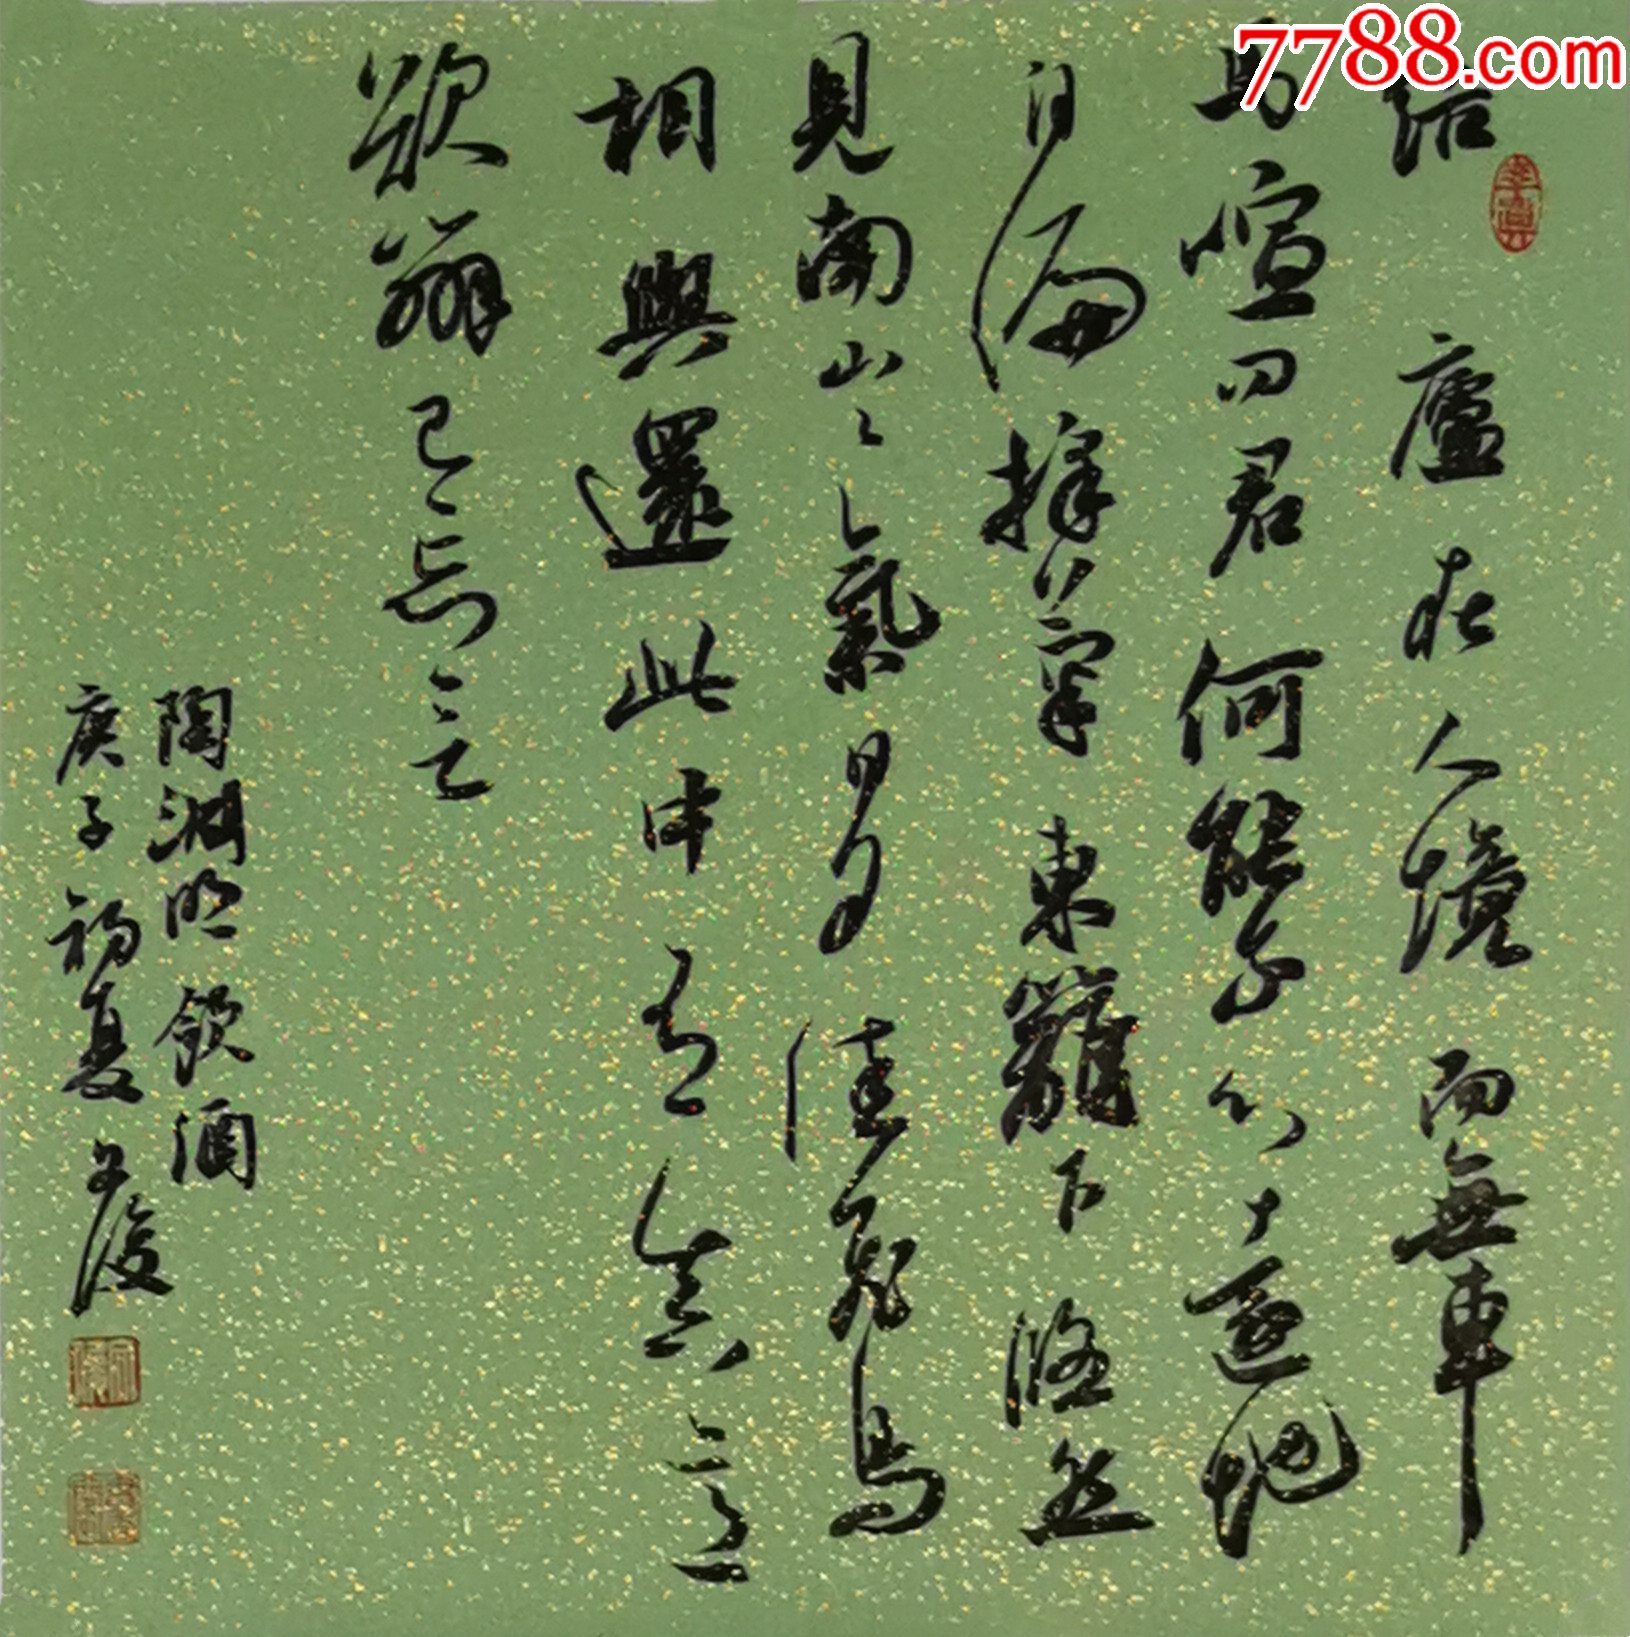 7788.com
結廬在人境而無車
馬喧问君何能尔心遠地
自偏採菊東籬下悠然
見南山山氣日夕佳飛鳥
相與還此中有真意
欲辯已忘言
陶淵明飲酒
庚子初夏